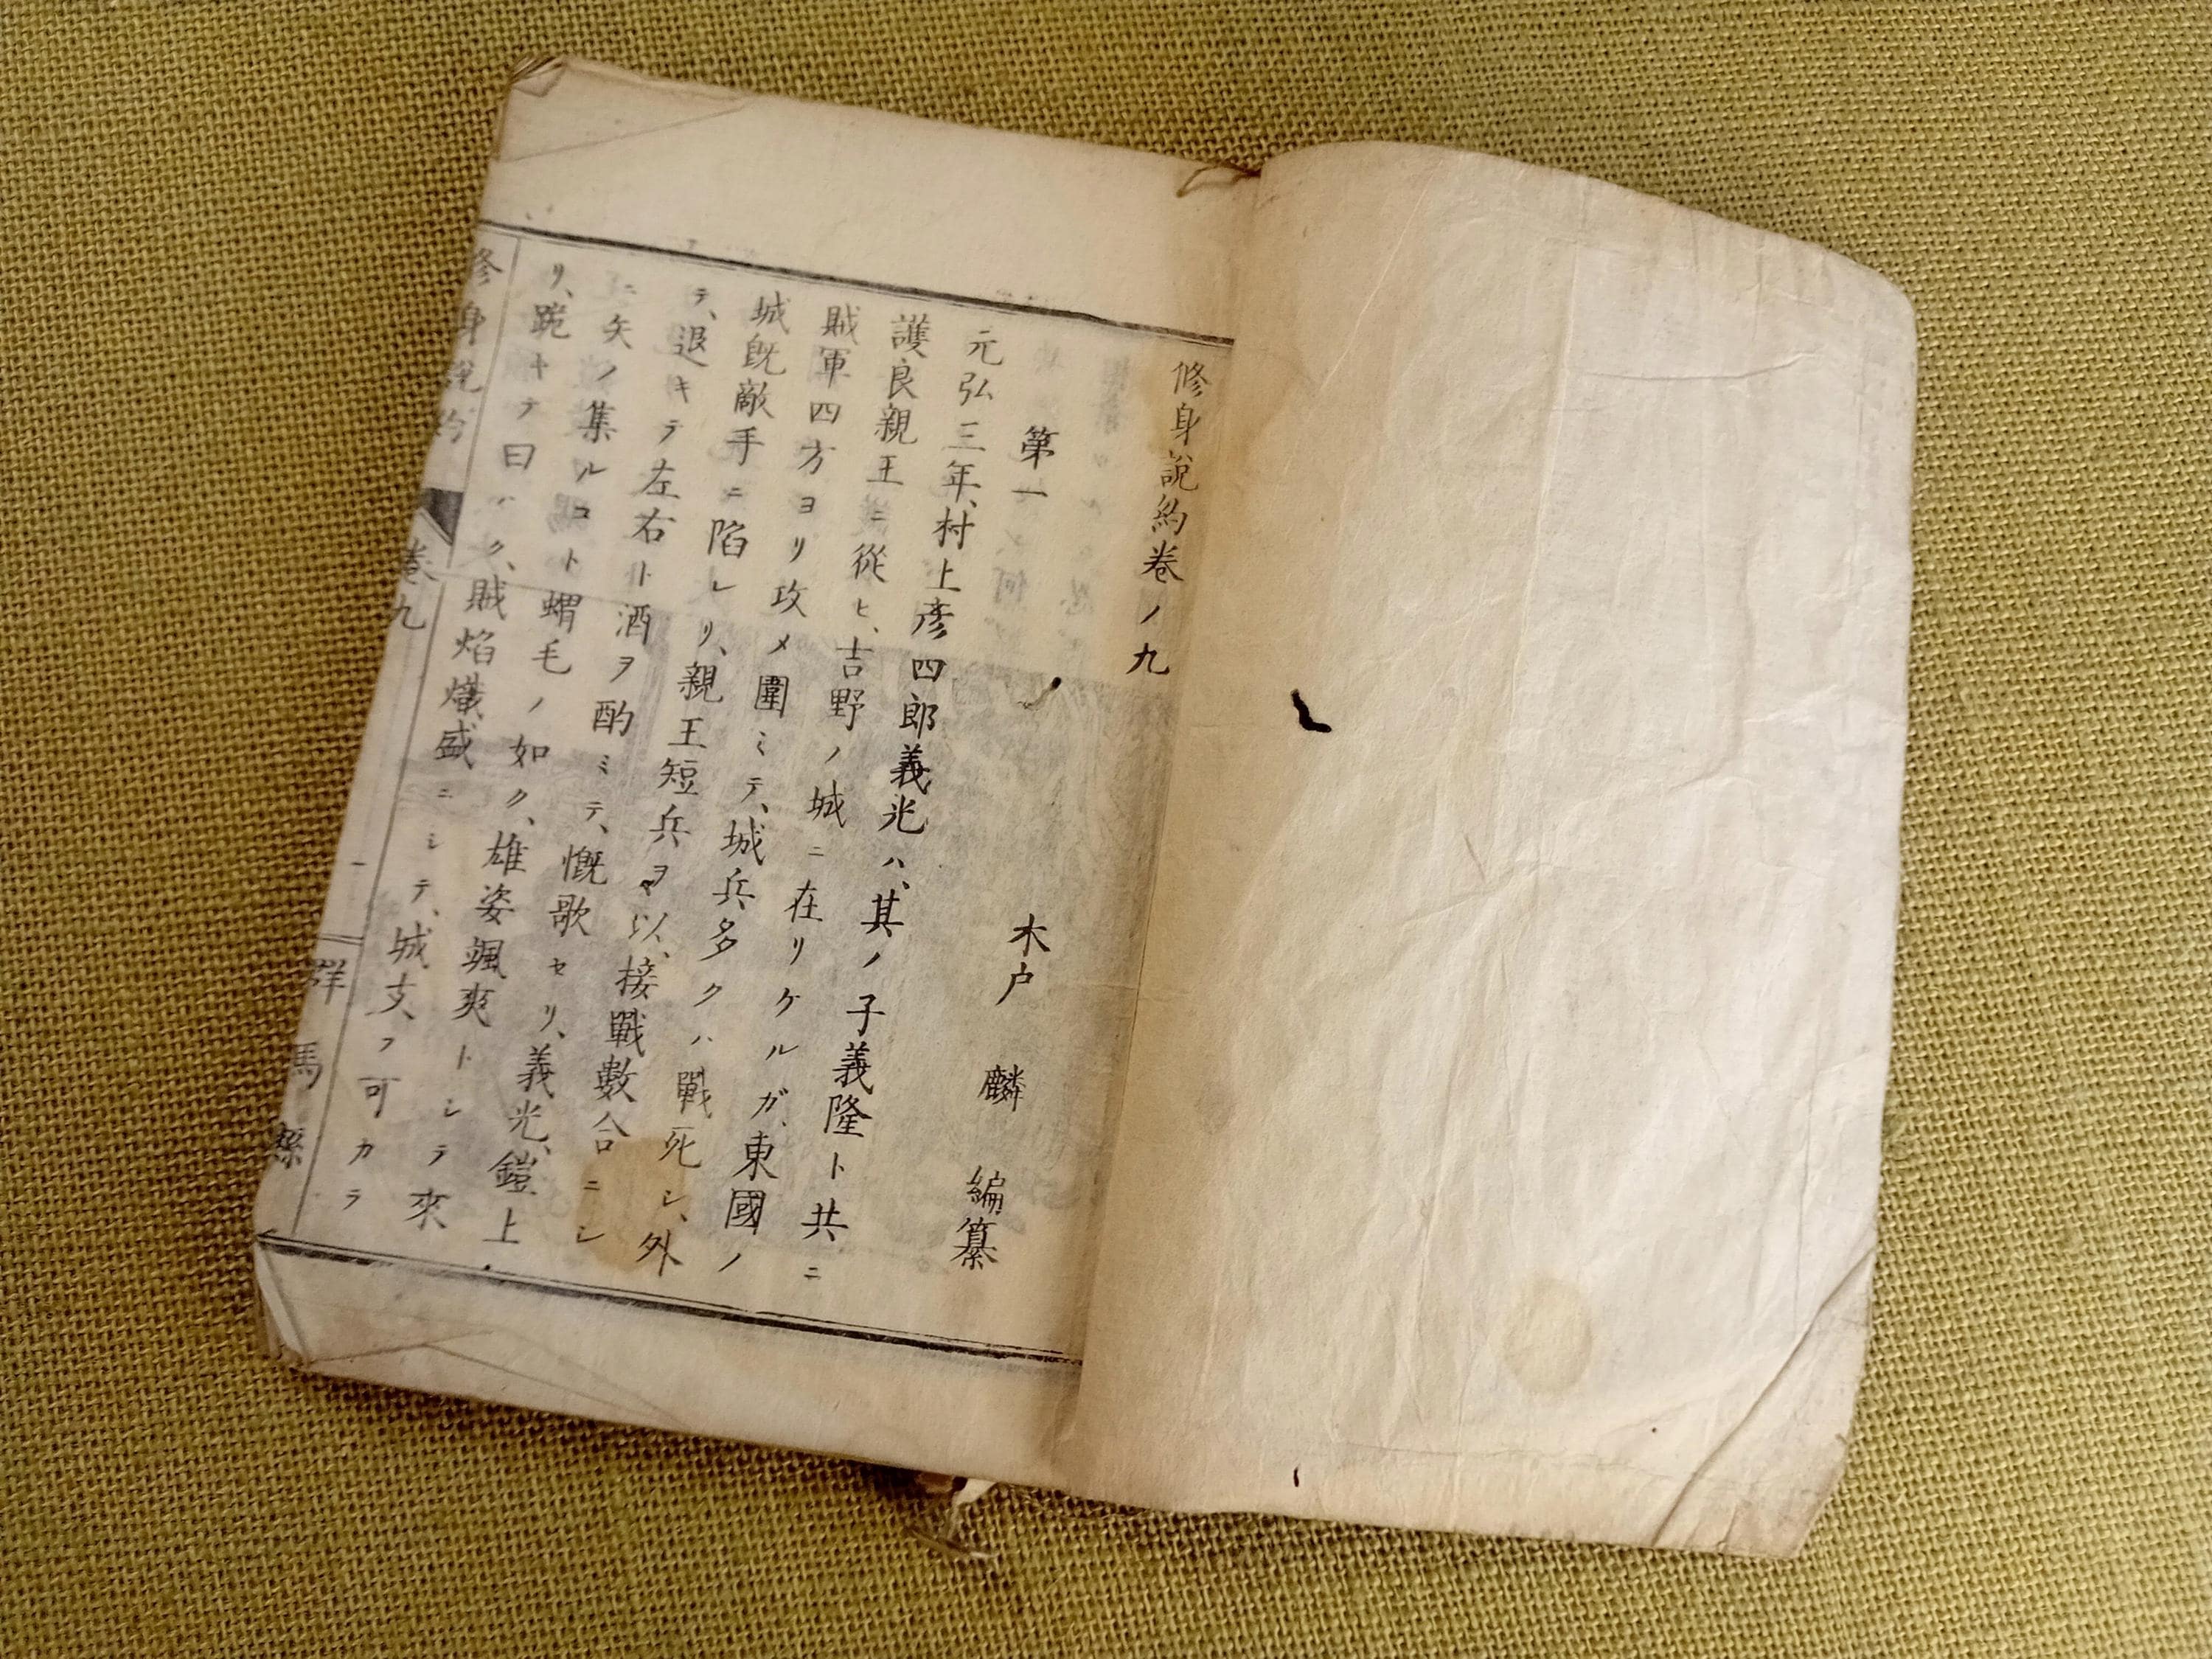 修身說約卷ノ九
木戸 麟 編纂
第一
元弘三年、村上彦四郎義光ハ、其ノ子義隆ト共ニ
護良親王ニ從ヒ、吉野ノ城ニ在リケルガ、東國ノ
賊軍四方ヨリ攻メ圍ミテ、城兵多クハ戰死シ、外
城既敵手ニ陷レリ、親王短兵ヲ以、接戰數合ニシ
テ、退キテ左右ト酒ヲ酌ミテ、慨歌セリ、義光、鎧上
ニ矢ノ集ルコト蝟毛ノ如ク、雄姿颯爽トシテ來
リ、跪キテ曰ハク、賊焰熾盛ニシテ、城支フ可カラ
修身說約 卷九 一 群馬縣